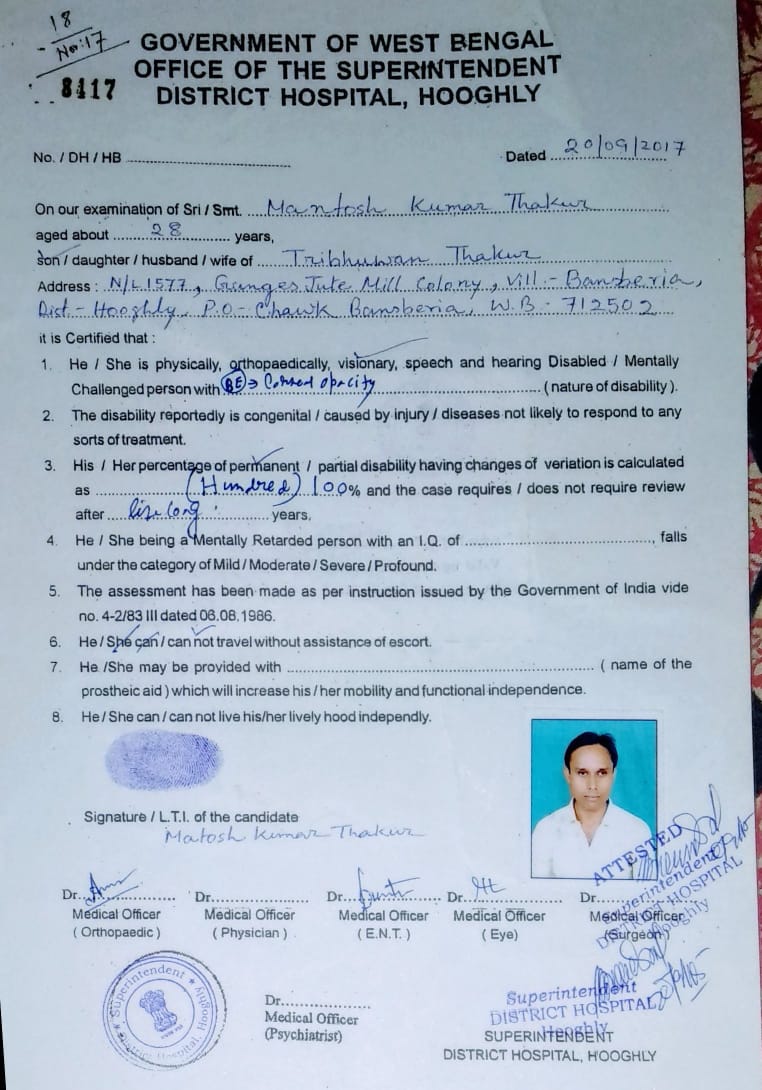 18
No:17
8417
GOVERNMENT OF WEST BENGAL
OFFICE OF THE SUPERINTENDENT
DISTRICT HOSPITAL, HOOGHLY
No. / DH / HB ........................ Dated 20/09/2017
On our examination of Sri / Smt. Mantosh Kumar Thakur
aged about 28 years,
son / daughter / husband / wife of Tribhuwan Thakur
Address : N/L 1577, Ganges Jute Mill Colony, Vill - Bansberia,
Dist - Hooghly, P.O - Chawk Bansberia, W.B - 712502
it is Certified that :
1. He / She is physically, orthopaedically, visionary, speech and hearing Disabled / Mentally
Challenged person with BE → Corneal opacity ( nature of disability ).
2. The disability reportedly is congenital / caused by injury / diseases not likely to respond to any
sorts of treatment.
3. His / Her percentage of permanent / partial disability having changes of veriation is calculated
as (Hundred) 100% and the case requires / does not require review
after life long years.
4. He / She being a Mentally Retarded person with an I.Q. of ........................, falls
under the category of Mild / Moderate / Severe / Profound.
5. The assessment has been made as per instruction issued by the Government of India vide
no. 4-2/83 III dated 06.08.1986.
6. He / She can / can not travel without assistance of escort.
7. He /She may be provided with ........................ ( name of the
prostheic aid ) which will increase his / her mobility and functional independence.
8. He / She can / can not live his/her lively hood independly.
Signature / L.T.I. of the candidate
Matosh Kumar Thakur
ATTESTED
Superintendent
DISTRICT HOSPITAL
Hooghly
Dr. Dr. Dr. Dr. Dr.
Medical Officer Medical Officer Medical Officer Medical Officer Medical Officer
( Orthopaedic ) ( Physician ) ( E.N.T. ) ( Eye ) (Surgeon)
Superintendent
District Hospital, Hooghly
Dr.
Medical Officer
(Psychiatrist)
Superintendent
DISTRICT HOSPITAL
Hooghly
SUPERINTENDENT
DISTRICT HOSPITAL, HOOGHLY